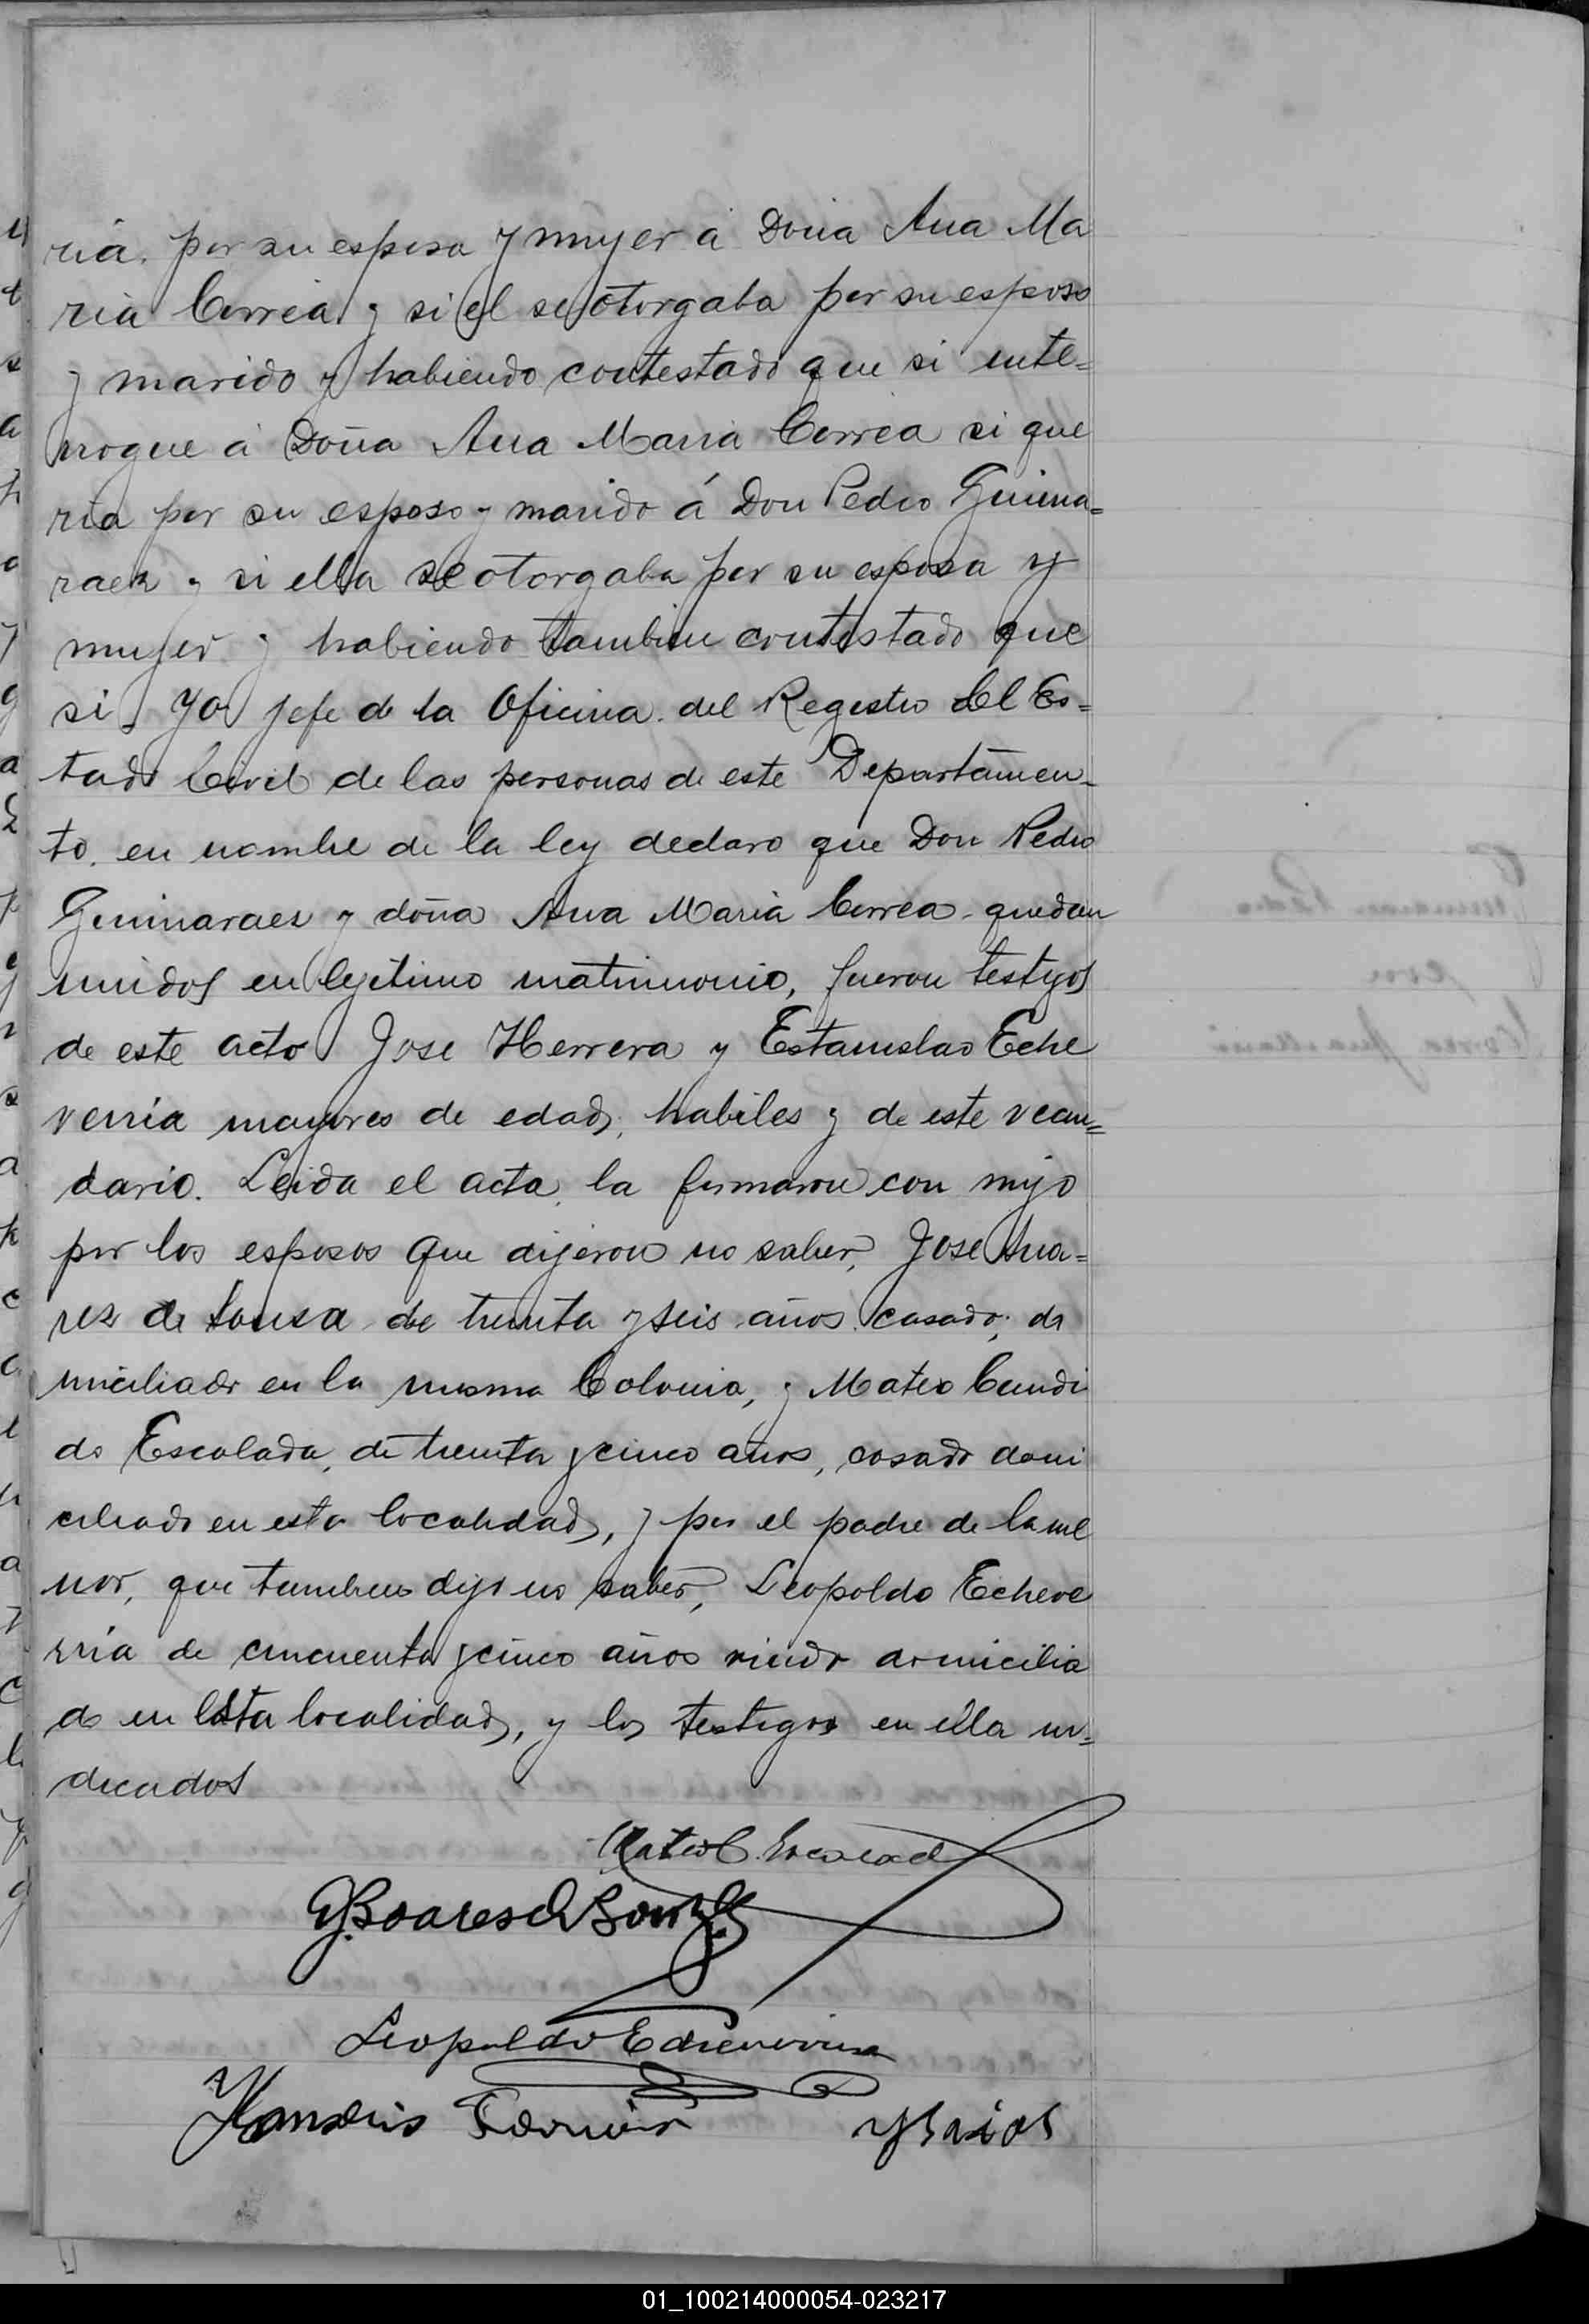 ria, por su esposa y mujer á Doña Ana Ma
ria Correa y si el se otorgaba por su esposo
y marido y habiendo contestado que si inte=
rrogue á Doña Ana Maria Correa si que
ria por su esposo y marido á Don Pedro Guima=
raez y si ella se otorgaba por su esposa y
mujer y habiendo tambien contestado que
si. Yo Jefe de la Oficina del Registro del Es=
tado Civil de las personas de este Departamen-
to, en nombre de la ley declaro que Don Pedro
Guimaraez y doña Ana Maria Correa quedan
unidos en legitimo matrimonio, fueron testigos
de este acto Jose Herrera y Estanislao Eche
verria mayores de edad, habiles y de este vecin=
dario. Leida el acta, la firmaron con migo
por los esposos que dijeron no saber, Jose Sua=
rez de Sousa de treinta y seis años casado, do
miciliado en la misma Colonia, y Mateo Candi
do Escalada, de treinta y cinco años, casado domi
ciliado en esta localidad, y por el padre de la me
nor, que tambien dijo no saber, Leopoldo Echeve
rria de cincuenta y cinco años viudo domicilia
do en esta localidad, y los testigos en ella in=
dicados
Mateo C. Escalad
J. Soares d Souza
Leopoldo Echeverria
01_100214000054-023217